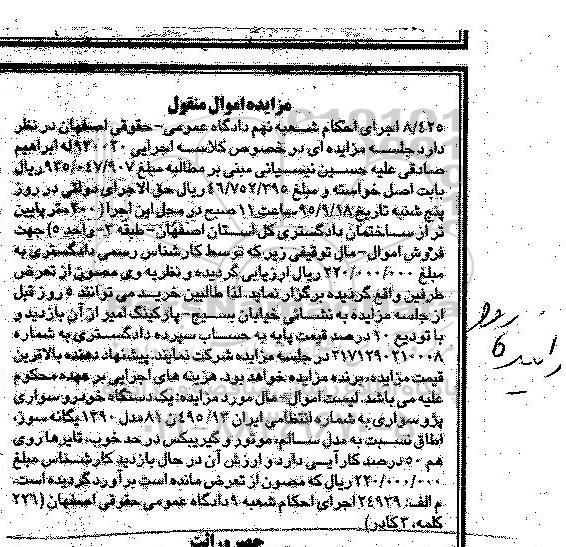 مزایده اموال منقول
۸/۴۲۵ اجرای احکام شعبه نهم دادگاه عمومی-حقوقی اصفهان در نظر
دارد جلسه مزایده ای در خصوص کلاسه اجرایی ۹۳۰۰۳۰ له ابراهیم
صادقی علیه حسین نیسیانی مبنی بر مطالبه مبلغ ۹۳۵/۰۴۷/۹۰۷ ریال
بابت اصل خواسته و مبلغ ۴۶/۷۵۲/۳۹۵ ریال حق الاجرای دولتی در روز
پنج شنبه تاریخ ۹۵/۹/۱۸ ساعت ۱۱ صبح در محل این اجرا (۳۰۰ متر پایین
تر از ساختمان دادگستری کل استان اصفهان-طبقه ۳-واحد ۵) جهت
فروش اموال-مال توقیفی زیر که توسط کارشناس رسمی دادگستری به
مبلغ ۲۲۰/۰۰۰/۰۰۰ ریال ارزیابی گردیده و نظریه وی مصون از تعرض
طرفین واقع گردیده برگزار نماید. لذا طالبین خرید می توانند ۵ روز قبل
از جلسه مزایده به نشانی خیابان بسیج-پارکینگ امیر از آن بازدید و
با تودیع ۱۰ درصد قیمت پایه به حساب سپرده دادگستری به شماره
۲۱۷۱۲۹۰۲۱۰۰۰۸ در جلسه مزایده شرکت نمایند. پیشنهاد دهنده بالاترین
قیمت مزایده، برنده مزایده خواهد بود. هزینه های اجرایی بر عهده محکوم
علیه می باشد. لیست اموال-مال مورد مزایده: یک دستگاه خودرو سواری
پژو سواری به شماره انتظامی ایران ۴۹۵/۱۳ ی ۸۱ مدل ۱۳۹۰ یگانه سوز،
اطاق نسبت به مدل سالم، موتور و گیربکس در حد خوب، تایرها روی
هم ۵۰ درصد کارآیی دارد و ارزش آن در حال بازدید کارشناس مبلغ
۲۲۰/۰۰۰/۰۰۰ ریال که مصون از تعرض مانده است برآورد گردیده است.
م الف: ۲۴۹۳۹ اجرای احکام شعبه ۹ دادگاه عمومی حقوقی اصفهان (۲۲۶
کلمه، ۳ کادر)
حصر وراثت